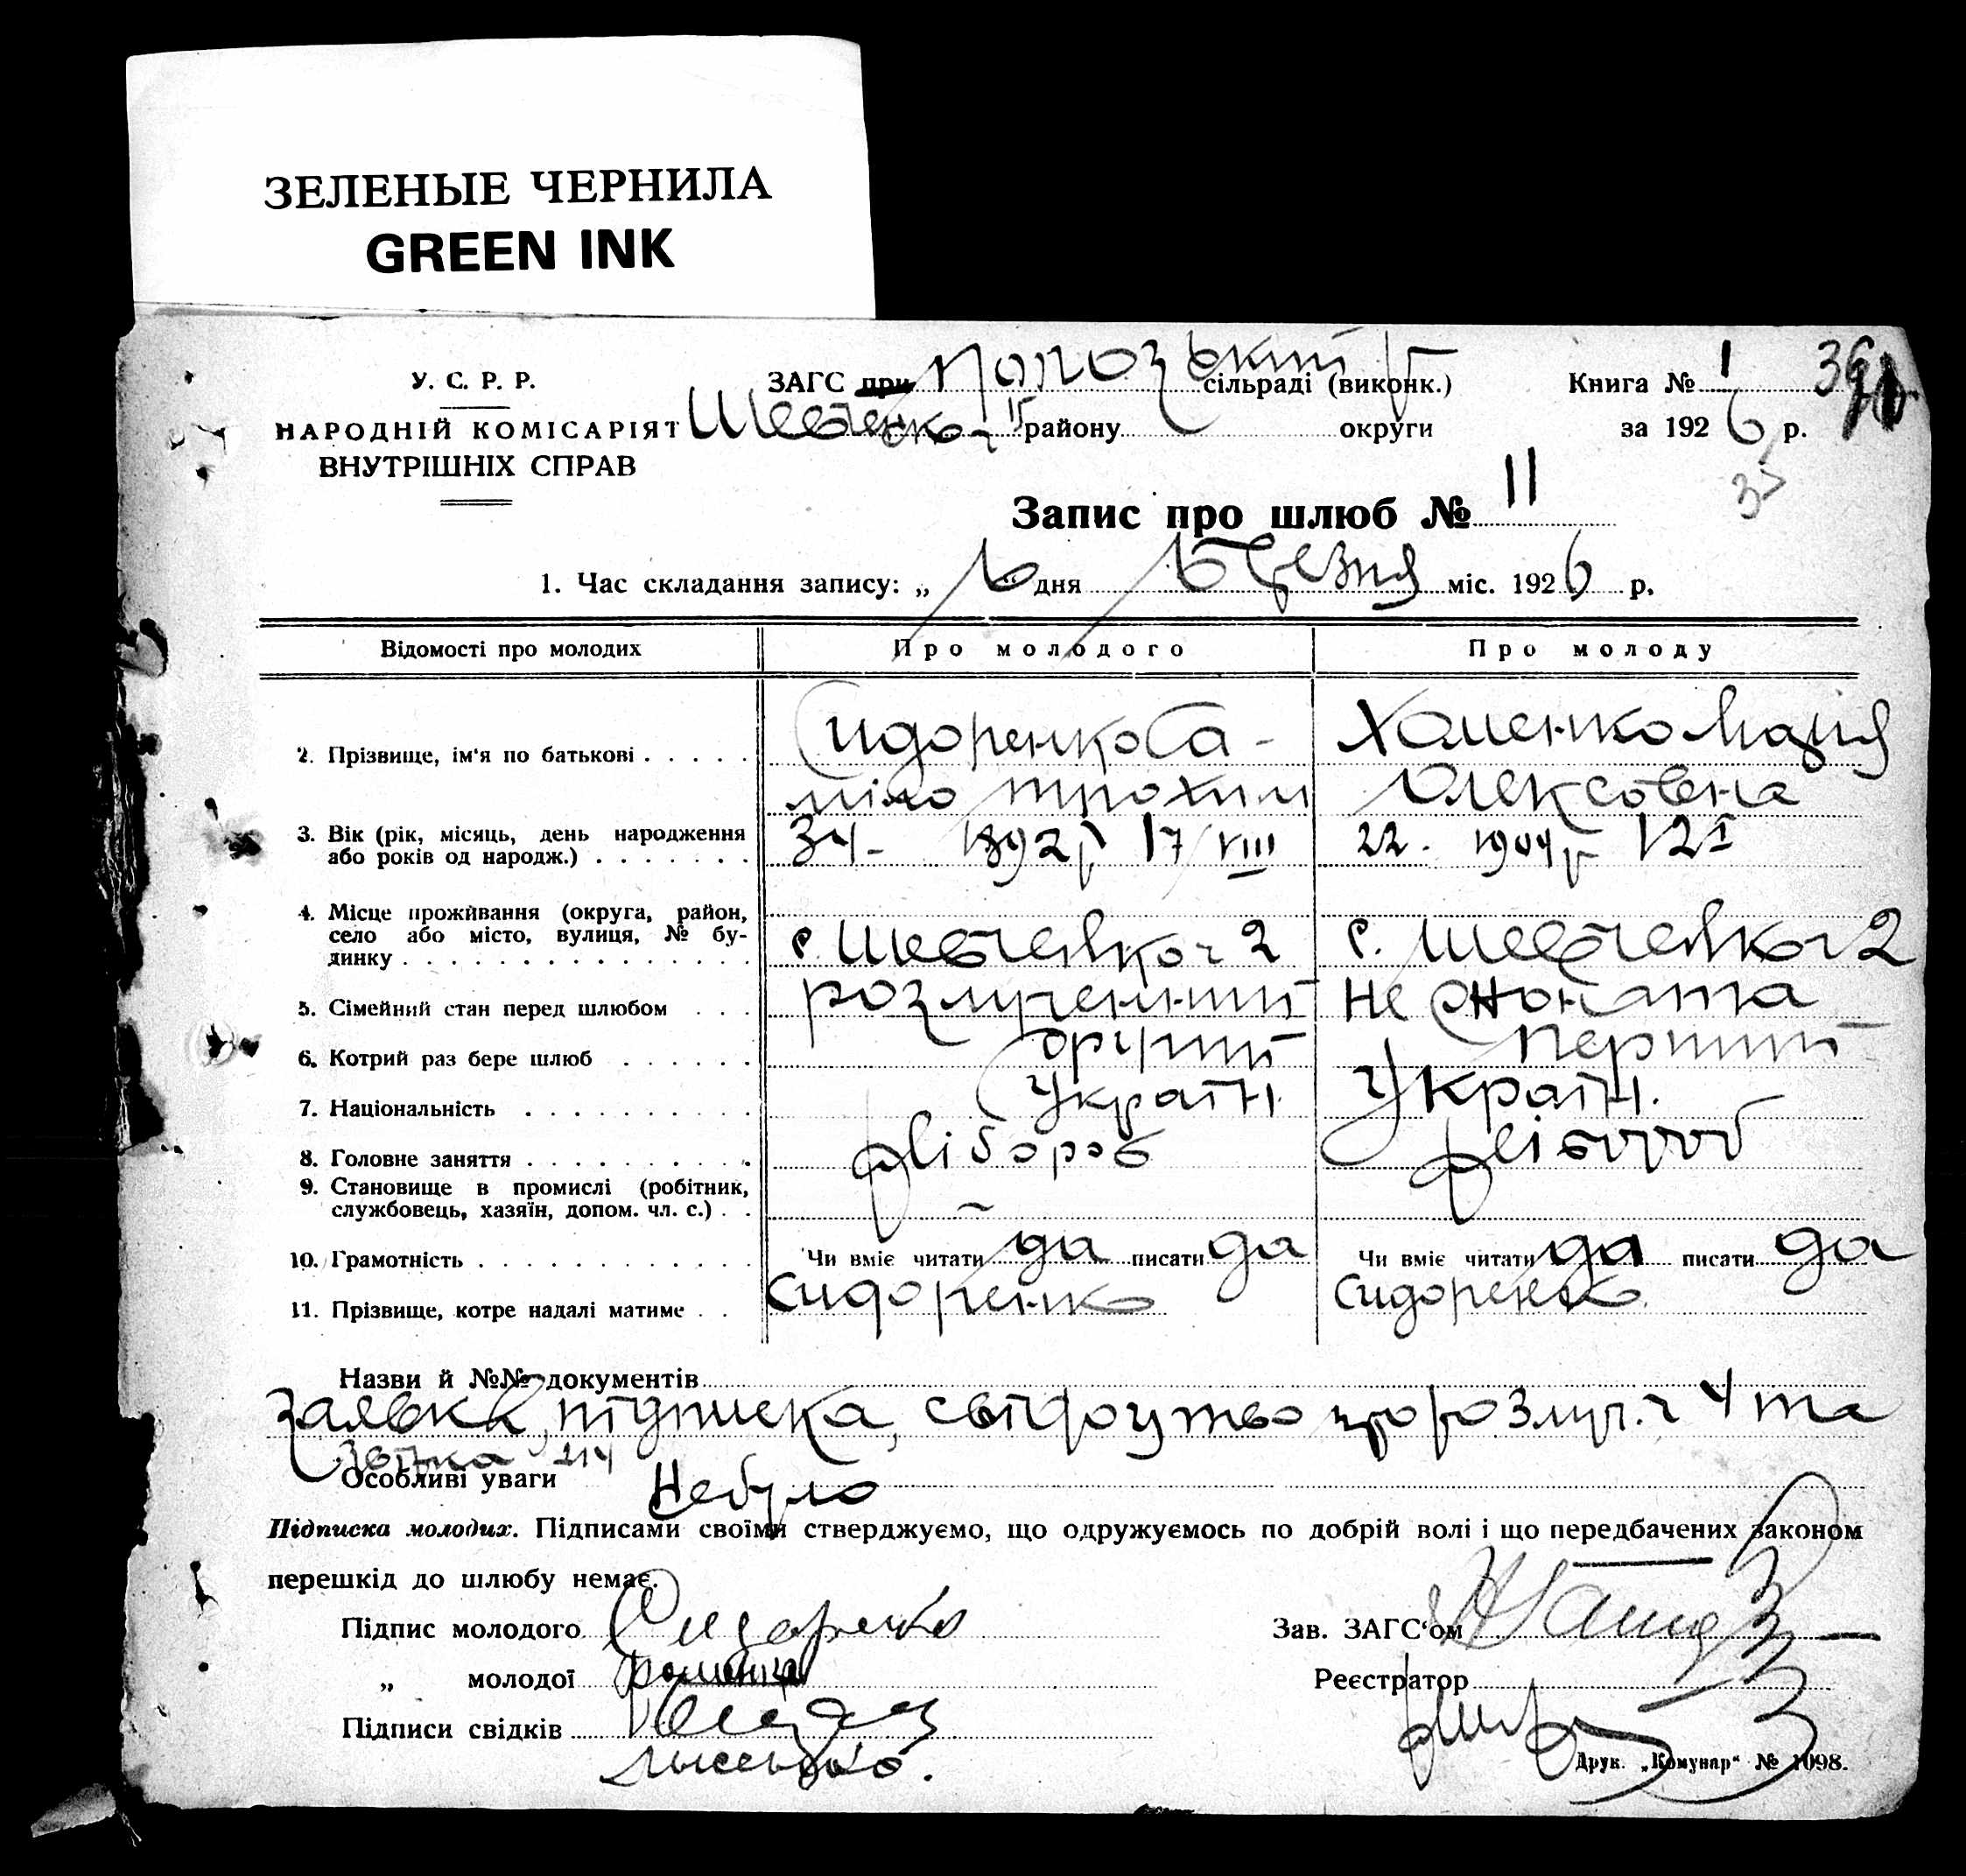 ЗЕЛЕНЫЕ ЧЕРНИЛА
GREEN INK
У. С. Р. Р.
НАРОДНІЙ КОМІСАРІЯТ
ВНУТРІШНІХ СПРАВ
ЗАГС при сільраді (виконк.)
району округи
Книга № 1
за 1926 р.
Запис про шлюб № 11
1. Час складання запису: „ дня Березня міс. 1926 р.
Відомості про молодих Про молодого Про молоду
2. Прізвище, ім'я по батькові . . . . . Сидоренко Са- Хоменко Марія
міло Трохим Олексовена
3. Вік (рік, місяць, день народження
або років од народж.) . . . . . . . 34- 1892 р 17/VIII 22. 1904 р 12 I
4. Місце проживання (округа, район,
село або місто, вулиця, № бу-
динку . . . . . . . . . . . . . . . с. Шевченко 2 с. Шевченко 2
5. Сімейний стан перед шлюбом . . . розлучений не жоната
6. Котрий раз бере шлюб . . . . . . другий перший
7. Національність . . . . . . . . . . Україн. Україн.
8. Головне заняття . . . . . . . . . . хлібороб хлібороб
9. Становище в промислі (робітник,
службовець, хазяїн, допом. чл. с.) . . -
10. Грамотність . . . . . . . . . . . . Чи вміє читати да писати да Чи вміє читати да писати да
11. Прізвище, котре надалі матиме . . Сидоренко Сидоренко
Назви й №№ документів
Заявка, підписка, свідоцтво про розлуч. ч 4 та
Особливі уваги Небуло
Підписка молодих. Підписами своїми стверджуємо, що одружуємось по добрій волі і що передбачених законом
перешкід до шлюбу немає.
Підпис молодого Сидоренко
„ молодої
Підписи свідків
Лысенко.
Зав. ЗАГС'ом
Реєстратор
Друк. „Комунар" № 1098.